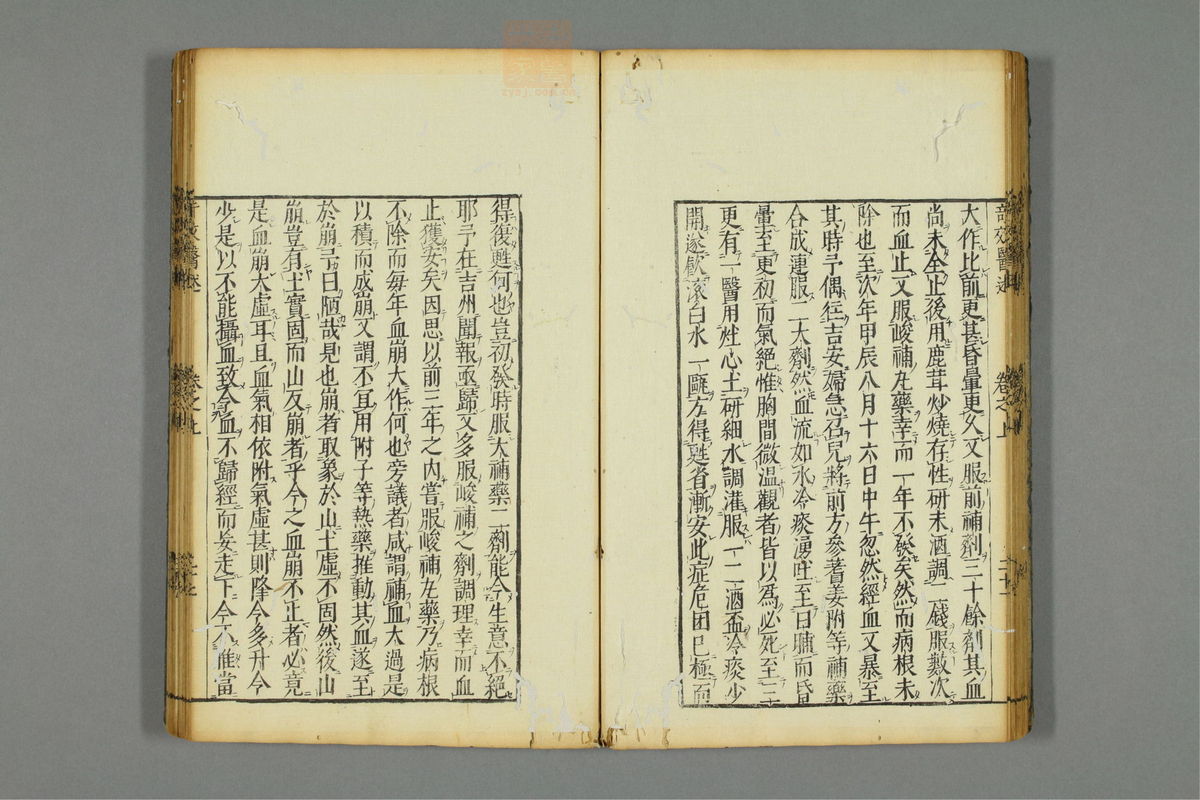 奇效醫述
卷之上
二十七
大作比前更甚昏暈更久又服前補劑三十餘劑其血
尚未全止後用鹿茸炒燒存性研末酒調一錢服數次
而血止又服峻補丸藥幸而一年不發矣然而病根未
除也至次年甲辰八月十六日中午忽然經血又暴至
其時予偶往吉安婦急召兒將前方參耆姜附等補藥
合成連服二大劑然血流如水冷痰湧吐至日晡而昏
暈至更初而氣絕惟胸間微溫觀者皆以為必死至三
更有一醫用灶心土研細水調灌服一二酒盃冷痰少
開遂飲滾白水一甌方得甦省漸安此症危困已極而
得復甦何也豈初發時服大補藥二劑能令生意不絕
耶予在吉州聞報亟歸又多服峻補之劑調理幸而血
止獲安矣因思以前三年之內嘗服峻補丸藥乃病根
不除而每年血崩大作何也旁議者咸謂補血太過是
以積而成崩又謂不宜用附子等熱藥推動其血遂至
於崩予曰陋哉見也崩者取象於山土虛不固然後山
崩豈有土實固而山反崩者乎今之血崩不止者必竟
是血崩大虛耳且血氣相依附氣虛甚則降令多升令
少是以不能攝血致令血不歸經而妄走下今不惟當
奇效醫述
卷之上
二十七
zysj.com.cn